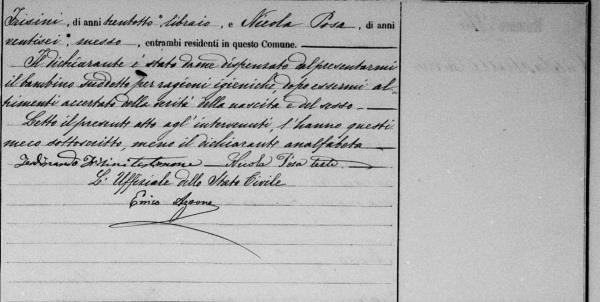 Trisini, di anni trentotto, libraio, e Nicola Posa, di anni
ventisei, messo, entrambi residenti in questo Comune.
Il dichiarante è stato da me dispensato dal presentarmi
il bambino suddetto per ragioni igieniche, dopo essermi al-
trimenti accertato della verità della nascita e del sesso
Letto il presente atto agl'intervenuti, l'hanno questi
meco sottoscritto, meno il dichiarante analfabeta
Ferdinando Trisini testimone Nicola Posa teste
L'Uffiziale dello Stato Civile
Enrico